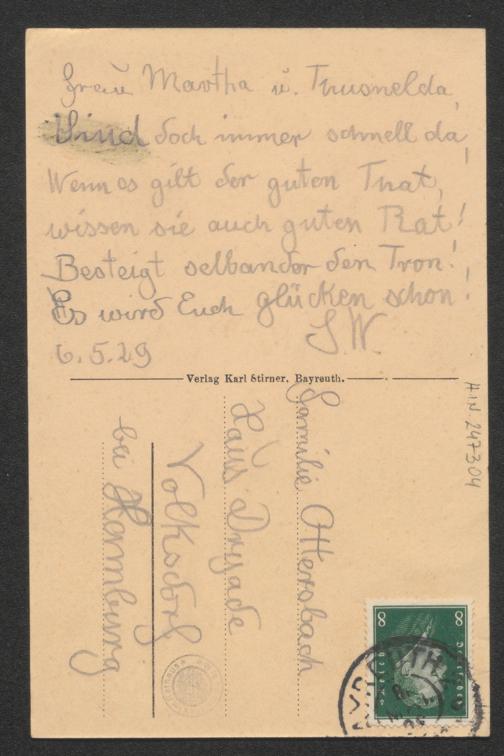 Frau Martha u. Thusnelda,
Sind doch immer schnell da,
Wenn es gilt der guten That,
wissen sie auch guten Rat!
Besteigt selbander den Tron!
Es wird Euch glücken schon!
S W.
6.5.29
Verlag Karl Stirner, Bayreuth.
Familie Ottersbach
Haus Dryade
Volksdorf
bei Hamburg
HIN 247304
8 8